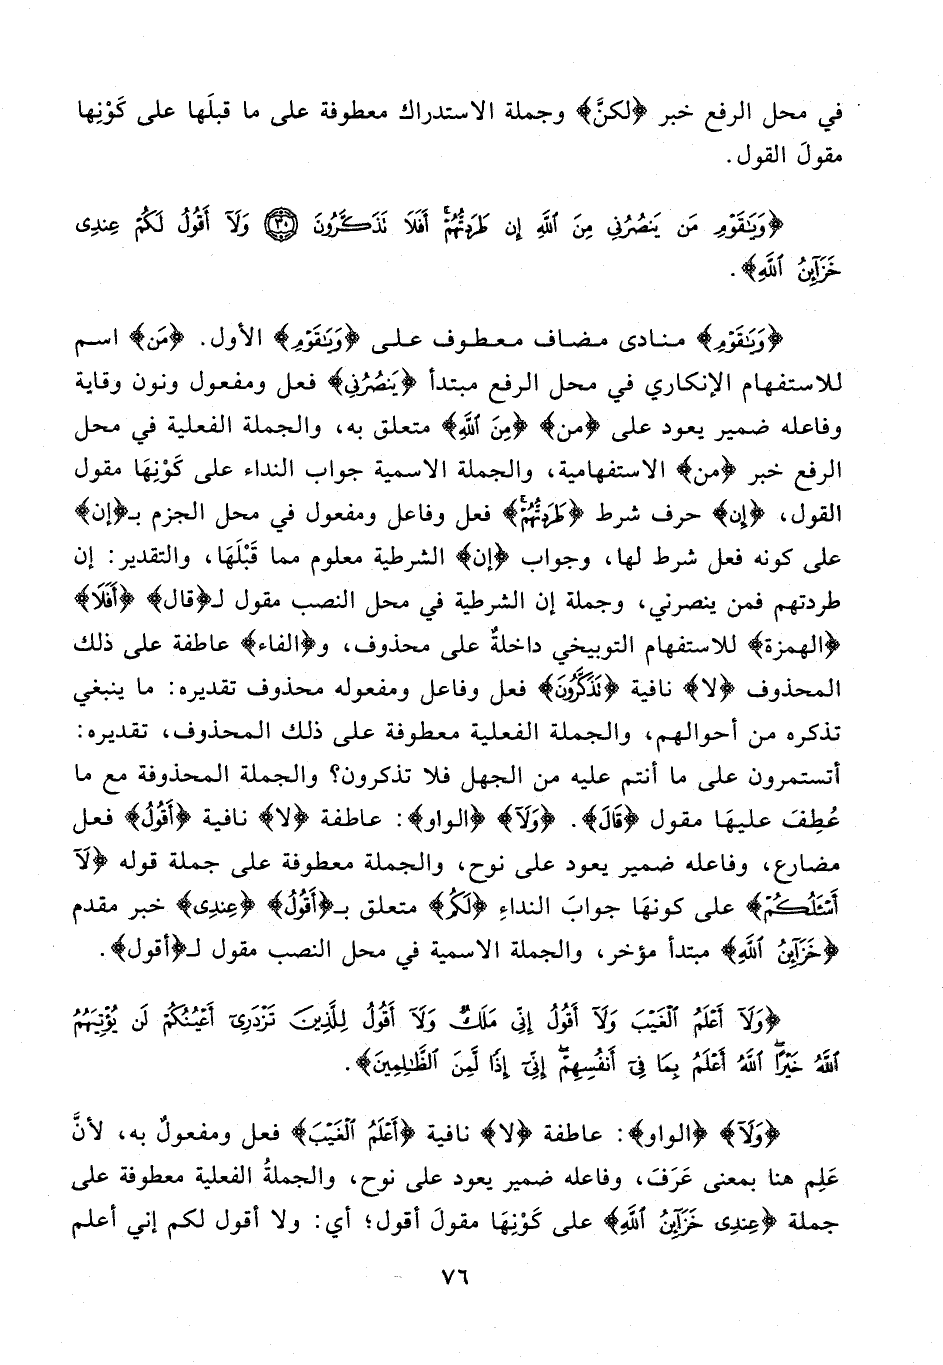 في محل الرفع خبر ﴿لكنَّ﴾ وجملة الاستدراك معطوفة على ما قبلَها على كَوْنِها
مقولَ القول.
﴿وَيَٰقَوْمِ مَن يَنصُرُنِي مِنَ ٱللَّهِ إِن طَرَدتُّهُمْۚ أَفَلَا تَذَكَّرُونَ ٣٠ وَلَآ أَقُولُ لَكُمْ عِندِى
خَزَآئِنُ ٱللَّهِ﴾.
﴿وَيَٰقَوْمِ﴾ منادى مضاف معطوف على ﴿وَيَٰقَوْمِ﴾ الأول. ﴿مَن﴾ اسم
للاستفهام الإنكاري في محل الرفع مبتدأ ﴿يَنصُرُنِي﴾ فعل ومفعول ونون وقاية
وفاعله ضمير يعود على ﴿من﴾ ﴿مِنَ ٱللَّهِ﴾ متعلق به، والجملة الفعلية في محل
الرفع خبر ﴿من﴾ الاستفهامية، والجملة الاسمية جواب النداء على كَوْنِهَا مقول
القول، ﴿إِن﴾ حرف شرط ﴿طَرَدتُّهُمْۚ﴾ فعل وفاعل ومفعول في محل الجزم بـ﴿إن﴾
على كونه فعل شرط لها، وجواب ﴿إن﴾ الشرطية معلوم مما قَبْلَهَا، والتقدير: إن
طردتهم فمن ينصرني، وجملة إن الشرطية في محل النصب مقول لـ﴿قال﴾ ﴿أَفَلَا﴾
﴿الهمزة﴾ للاستفهام التوبيخي داخلةٌ على محذوف، و﴿الفاء﴾ عاطفة على ذلك
المحذوف ﴿لا﴾ نافية ﴿تَذَكَّرُونَ﴾ فعل وفاعل ومفعوله محذوف تقديره: ما ينبغي
تذكره من أحوالهم، والجملة الفعلية معطوفة على ذلك المحذوف، تقديره:
أتستمرون على ما أنتم عليه من الجهل فلا تذكرون؟ والجملة المحذوفة مع ما
عُطِفَ عليهَا مقول ﴿قَالَ﴾. ﴿وَلَآ﴾ ﴿الواو﴾: عاطفة ﴿لا﴾ نافية ﴿أَقُولُ﴾ فعل
مضارع، وفاعله ضمير يعود على نوح، والجملة معطوفة على جملة قوله ﴿لَآ
أَسْـَٔلُكُمْ﴾ على كونهَا جوابَ النداءِ ﴿لَكُمْ﴾ متعلق بـ﴿أَقُولُ﴾ ﴿عِندِى﴾ خبر مقدم
﴿خَزَآئِنُ ٱللَّهِ﴾ مبتدأ مؤخر، والجملة الاسمية في محل النصب مقول لـ﴿أقول﴾.
﴿وَلَآ أَعْلَمُ ٱلْغَيْبَ وَلَآ أَقُولُ إِنِّى مَلَكٌ وَلَآ أَقُولُ لِلَّذِينَ تَزْدَرِىٓ أَعْيُنُكُمْ لَن يُؤْتِيَهُمُ
ٱللَّهُ خَيْرًاۖ ٱللَّهُ أَعْلَمُ بِمَا فِىٓ أَنفُسِهِمْۖ إِنِّىٓ إِذًا لَّمِنَ ٱلظَّٰلِمِينَ﴾.
﴿وَلَآ﴾ ﴿الواو﴾: عاطفة ﴿لا﴾ نافية ﴿أَعْلَمُ ٱلْغَيْبَ﴾ فعل ومفعولٌ به، لأنَّ
عَلِم هنا بمعنى عَرَفَ، وفاعله ضمير يعود على نوح، والجملةُ الفعلية معطوفة على
جملة ﴿عِندِى خَزَآئِنُ ٱللَّهِ﴾ على كَوْنِهَا مقولَ أقول؛ أي: ولا أقول لكم إني أعلم
٧٦